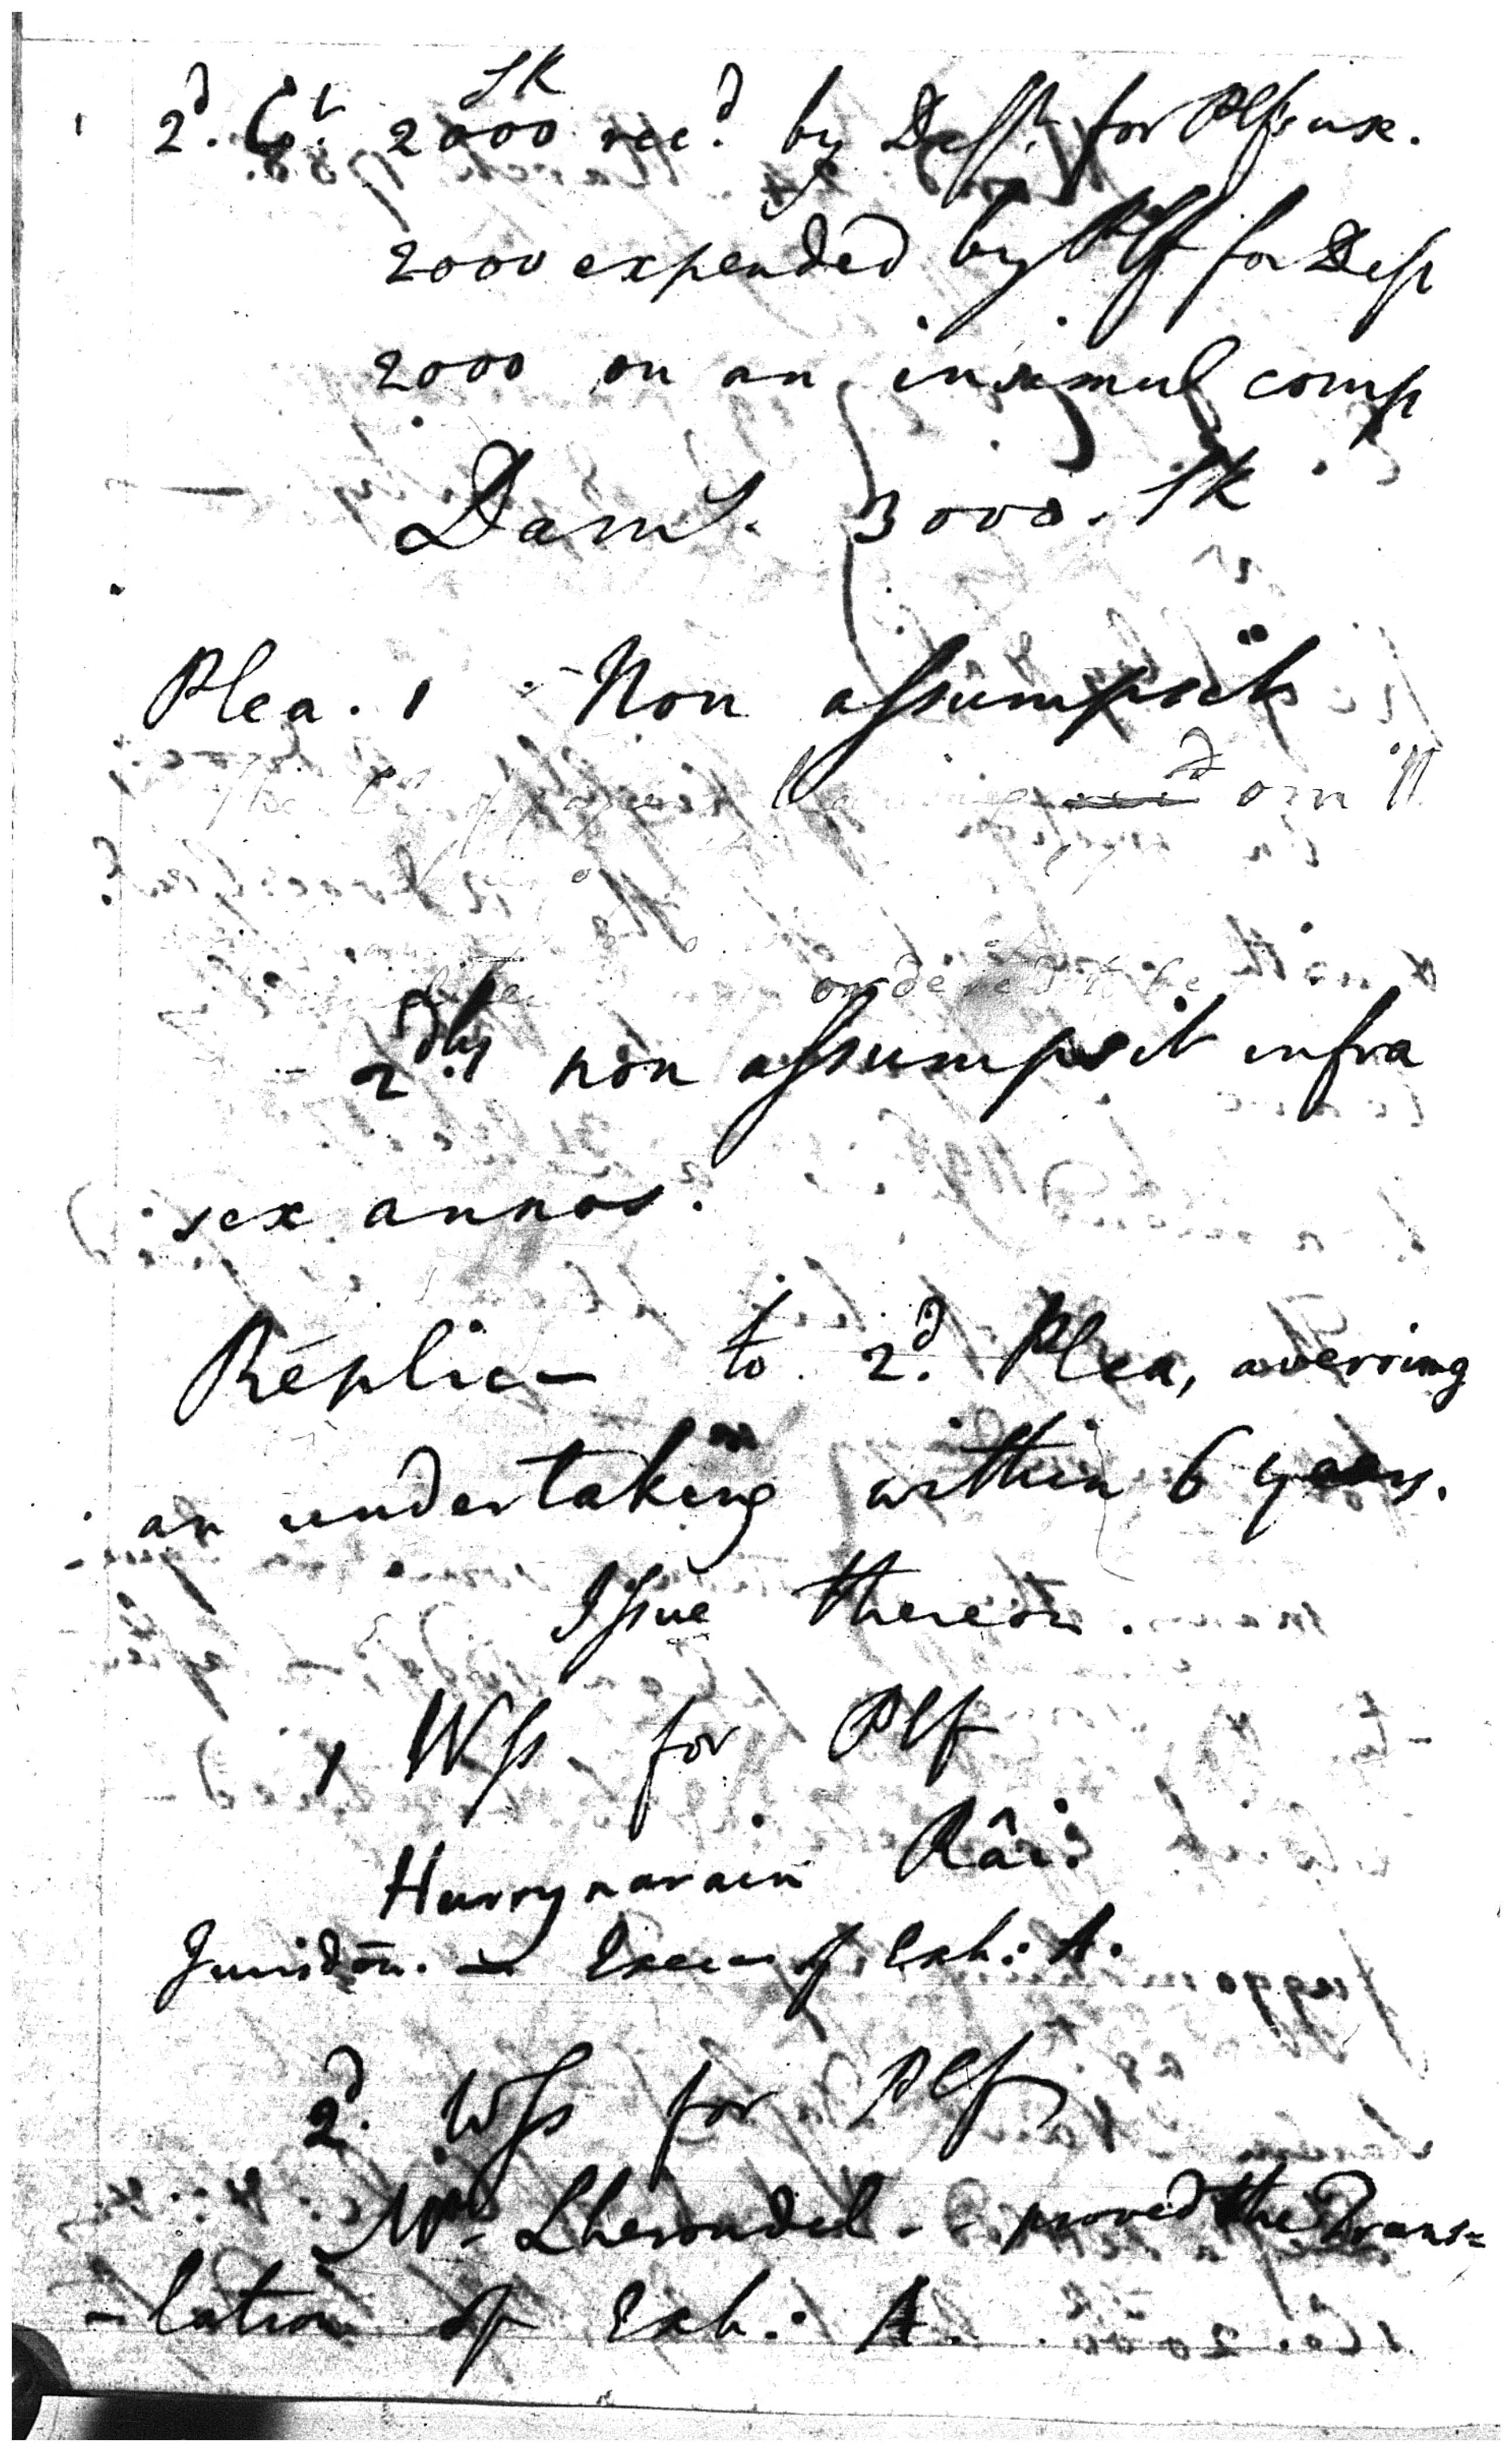 SR
2d. Ct. 2000 recd. by Deft. for Plf's use.
2000 expended by Plf for Deft
2000 on an insimul comp
Dams. 3000. SR
Plea. 1 Non assumpsit
2dly non assumpsit infra
sex annos.
Replic— to 2d. Plea, averring
an undertaking within 6 years.
Issue thereon.
1 Wss for Plf
Hurrynarain Râi.
Jurisdon. — Exec— of Exh: A.
2d. Wss for Plf
Mr. Lherondel - proved the Trans=
-lation of Exh: A.